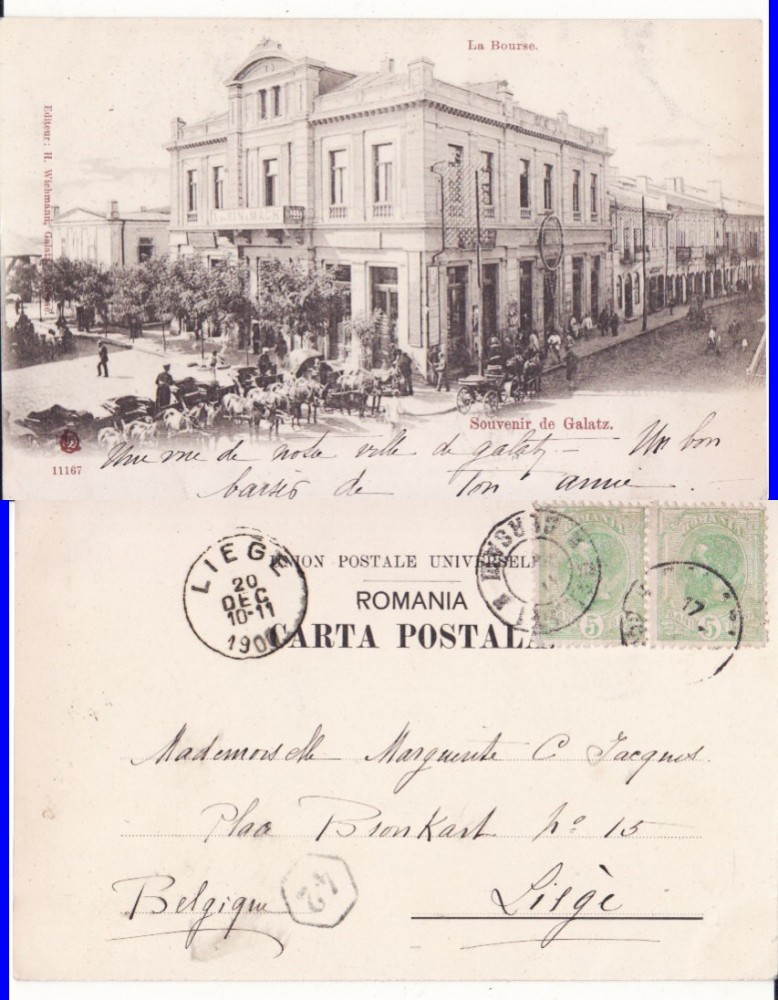 La Bourse.
Editeur: H. Wichmann, Galatz
Souvenir de Galatz.
11167
Une vue de notre ville de galatz – Un bon
baiser de Ton amie
LIEGE
20
DEC
10-11
190
UNION POSTALE UNIVERSELLE
ROMANIA
CARTA POSTALA
ROMANIA
5
5
17
Mademoiselle Marguerite C Jacques.
Place Bronkart No 15
Belgique
42
Liège